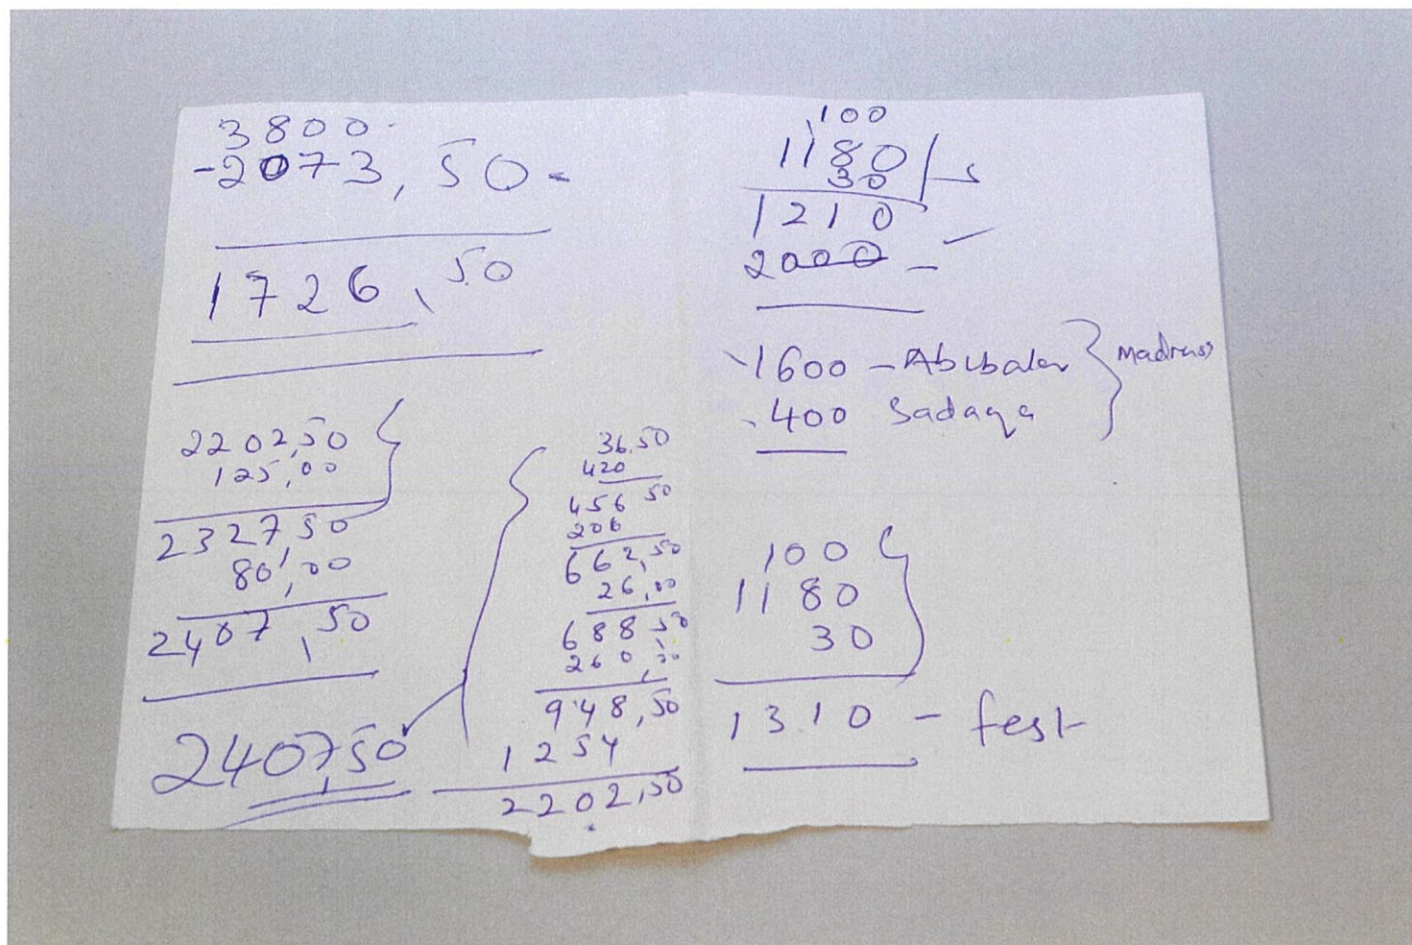 3800
-2073,50-
1726,50
2202,50
125,00
2327,50
80,00
2407,50
2407,50
36.50
420
456 50
206
662,50
26,00
688,50
260,00
948,50
1254
2202,50
100
1180
30
1210
2000 -
1600 - Abubaker
400 Sadaqa
100
1180
30
1310 - fest